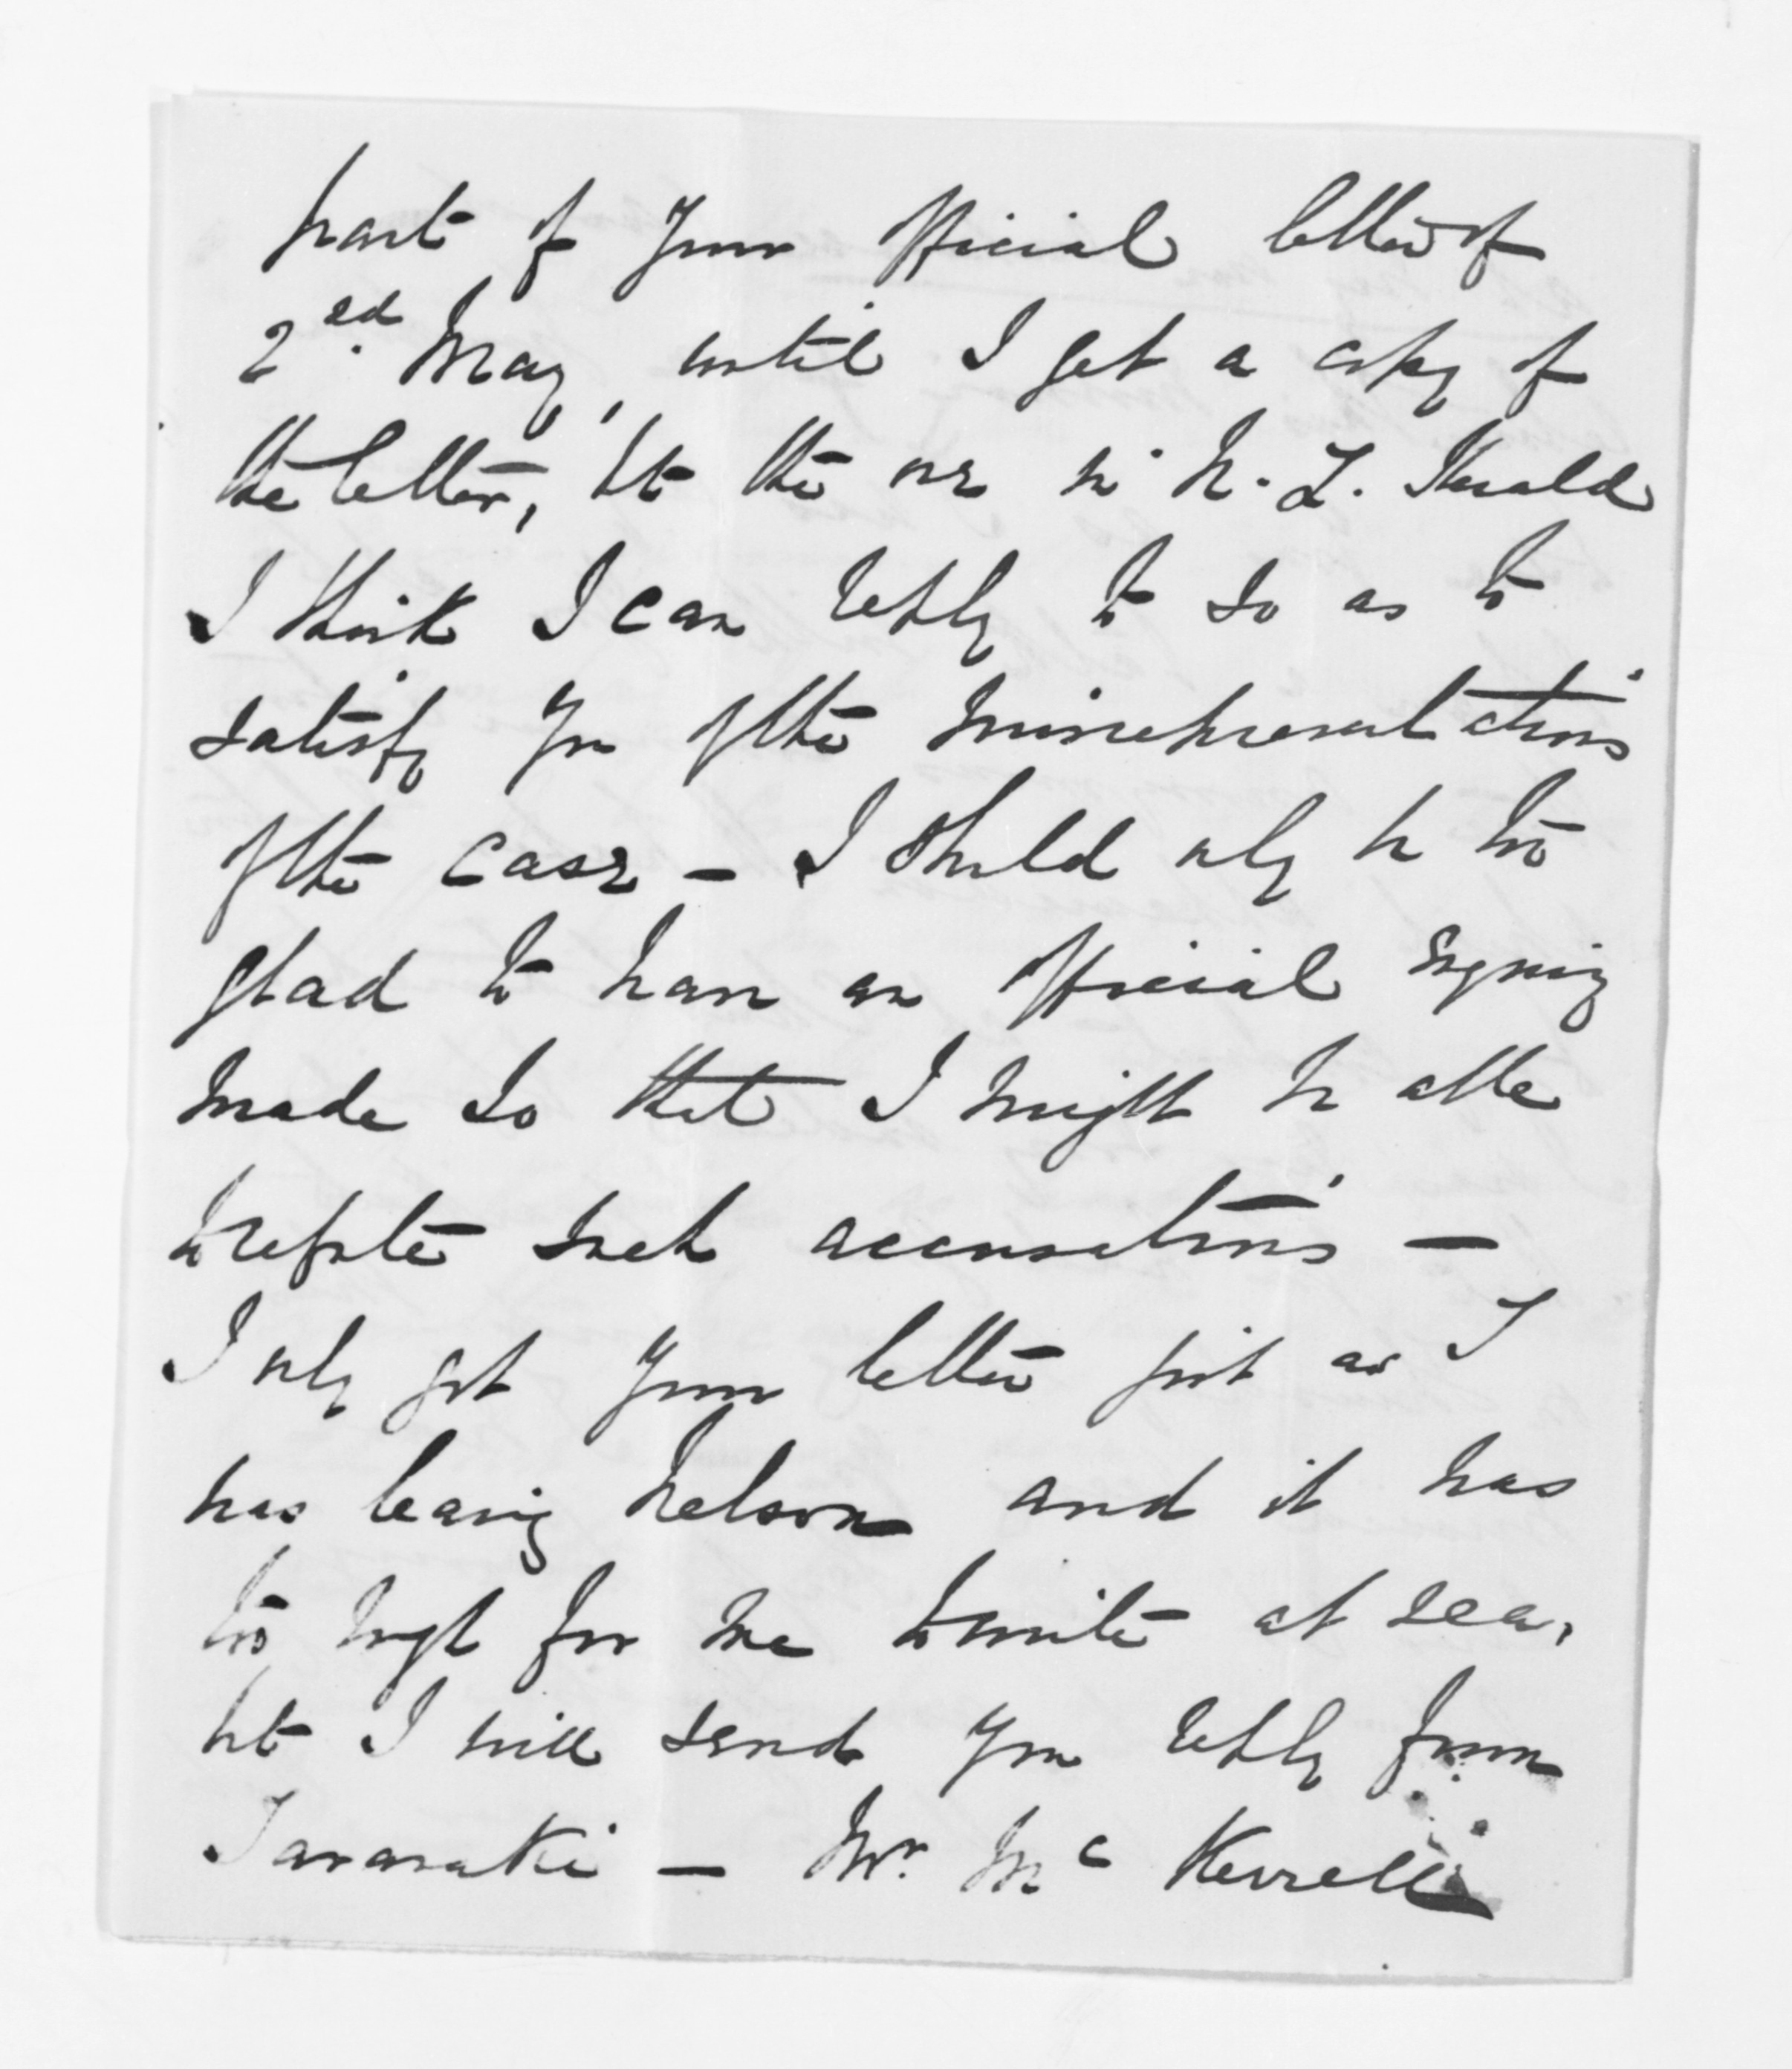 part of your official letter of
2nd. May, until I get a copy of
the letter, but the one in N. Z. Herald
I think I can reply to so as to
satisfy you of the misrepresentations
of the case - I should only be too
glad to have an official enquiry
made so that I might be able
to refute such accusations -
I only got your letter just as I
was leaving Nelson and it was
too rough for me to write at sea,
but I will send you reply from
Taranaki - Mr. McKerrell